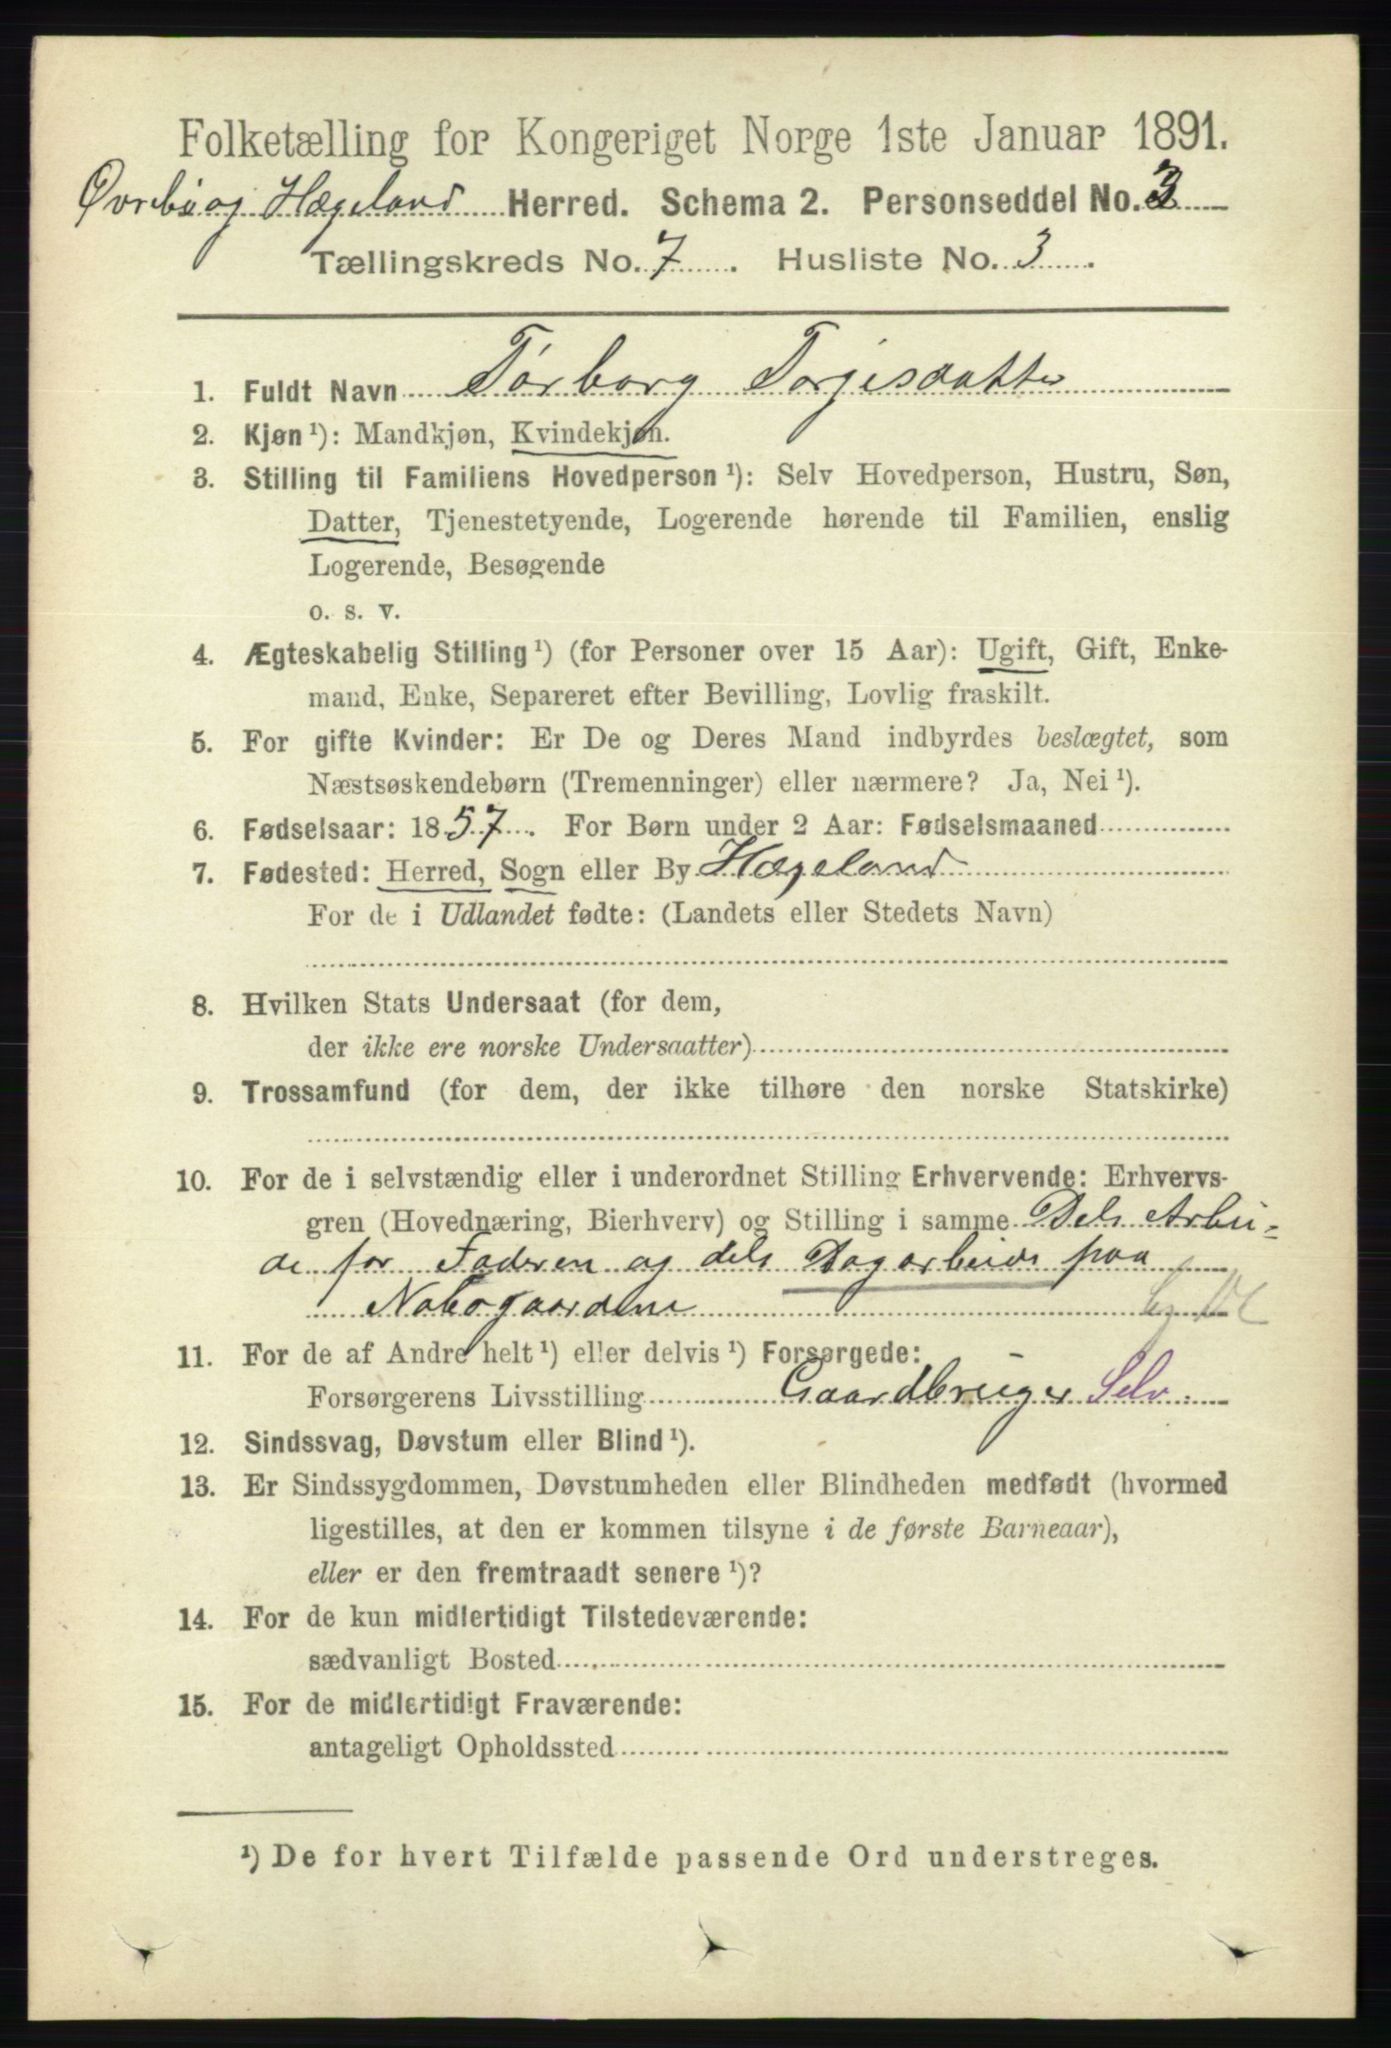 Folketælling for Kongeriget Norge 1ste Januar 1891.
Øvrebø og Hægeland Herred. Schema 2. Personseddel No. 3
Tællingskreds No. 7. Husliste No. 3.
1. Fuldt Navn Tørborg Torjesdatter
2. Kjøn ¹): Mandkjøn, Kvindekjøn.
3. Stilling til Familiens Hovedperson ¹): Selv Hovedperson, Hustru, Søn,
Datter, Tjenestetyende, Logerende hørende til Familien, enslig
Logerende, Besøgende
o. s. v.
4. Ægteskabelig Stilling ¹) (for Personer over 15 Aar): Ugift, Gift, Enke-
mand, Enke, Separeret efter Bevilling, Lovlig fraskilt.
5. For gifte Kvinder: Er De og Deres Mand indbyrdes beslægtet, som
Næstsøskendebørn (Tremenninger) eller nærmere? Ja, Nei ¹).
6. Fødselsaar: 1857. For Børn under 2 Aar: Fødselsmaaned
7. Fødested: Herred, Sogn eller By Hægeland
For de i Udlandet fødte: (Landets eller Stedets Navn)
8. Hvilken Stats Undersaat (for dem,
der ikke ere norske Undersaatter)
9. Trossamfund (for dem, der ikke tilhøre den norske Statskirke)
10. For de i selvstændig eller i underordnet Stilling Erhvervende: Erhvervs-
gren (Hovednæring, Bierhverv) og Stilling i samme Dels Arbei-
de for Faderen og dels Dagarbeide paa
Nabogaardene
11. For de af Andre helt ¹) eller delvis ¹) Forsørgede:
Forsørgerens Livsstilling Gaardbruger Selv.
12. Sindssvag, Døvstum eller Blind ¹).
13. Er Sindssygdommen, Døvstumheden eller Blindheden medfødt (hvormed
ligestilles, at den er kommen tilsyne i de første Barneaar),
eller er den fremtraadt senere ¹)?
14. For de kun midlertidigt Tilstedeværende:
sædvanligt Bosted
15. For de midlertidigt Fraværende:
antageligt Opholdssted
¹) De for hvert Tilfælde passende Ord understreges.